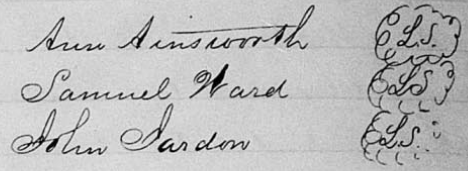 Ann Ainsworth L.S.
Samuel Ward L.S.
John Jardon L.S.